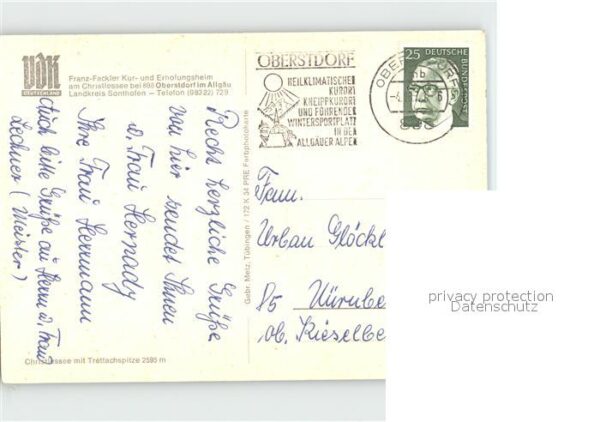 VDK
DEUTSCHLAND
Franz-Fackler Kur- und Erholungsheim
am Christlessee bei 898 Oberstdorf im Allgäu
Landkreis Sonthofen – Telefon (083 22) 729
OBERSTDORF
HEILKLIMATISCHER
KURORT
KNEIPPKURORT
UND FÜHRENDER
WINTERSPORTPLATZ
IN DEN
ALLGÄUER ALPEN
25 DEUTSCHE
BUNDESPOST
Recht herzliche Grüße
von hier sendet Ihnen
u. Frau
Ihre Frau Herrmann
auch bitte Grüße an Herrn u. Frau
Lechner (Meister)
Gebr. Metz, Tübingen / 172 K 34 PRE Farbphotokarte
Fam.
Urban Glöckl
85 Nürnbe
ob. Kieselbe
Christlessee mit Trettachspitze 2595 m
privacy protection
Datenschutz